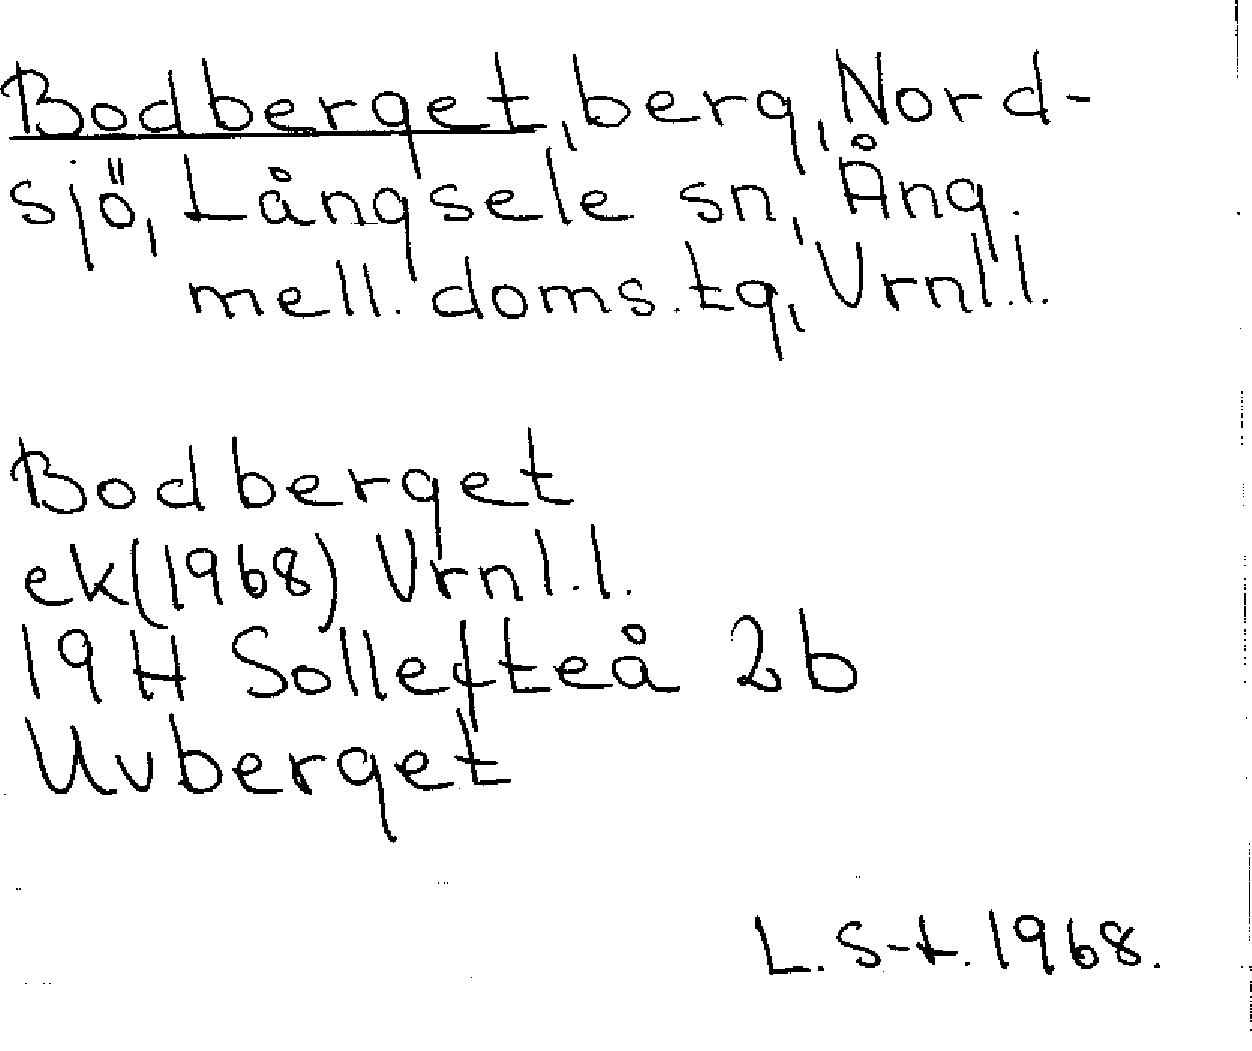 Bodberget, berg, Nord-
sjö, Långsele sn, Ång.
mell. doms. tg, Vrnl.l.
Bodberget
ek(1968) Vrnl.l.
19H Sollefteå 2b
Uvberget
L. S-t. 1968.